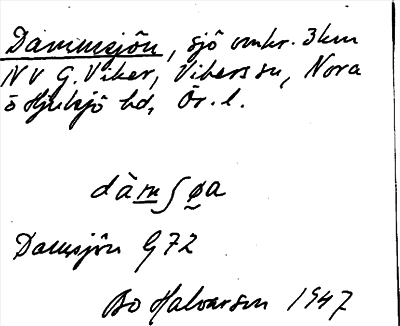 Dammsjön, sjö omkr. 3 km
NV G. Viker, Vikers sn, Nora
o Hjulsjö hd, Ör. l.
dàm̲ʃø̰a
Damsjön G72
Bo Halvarson 1947